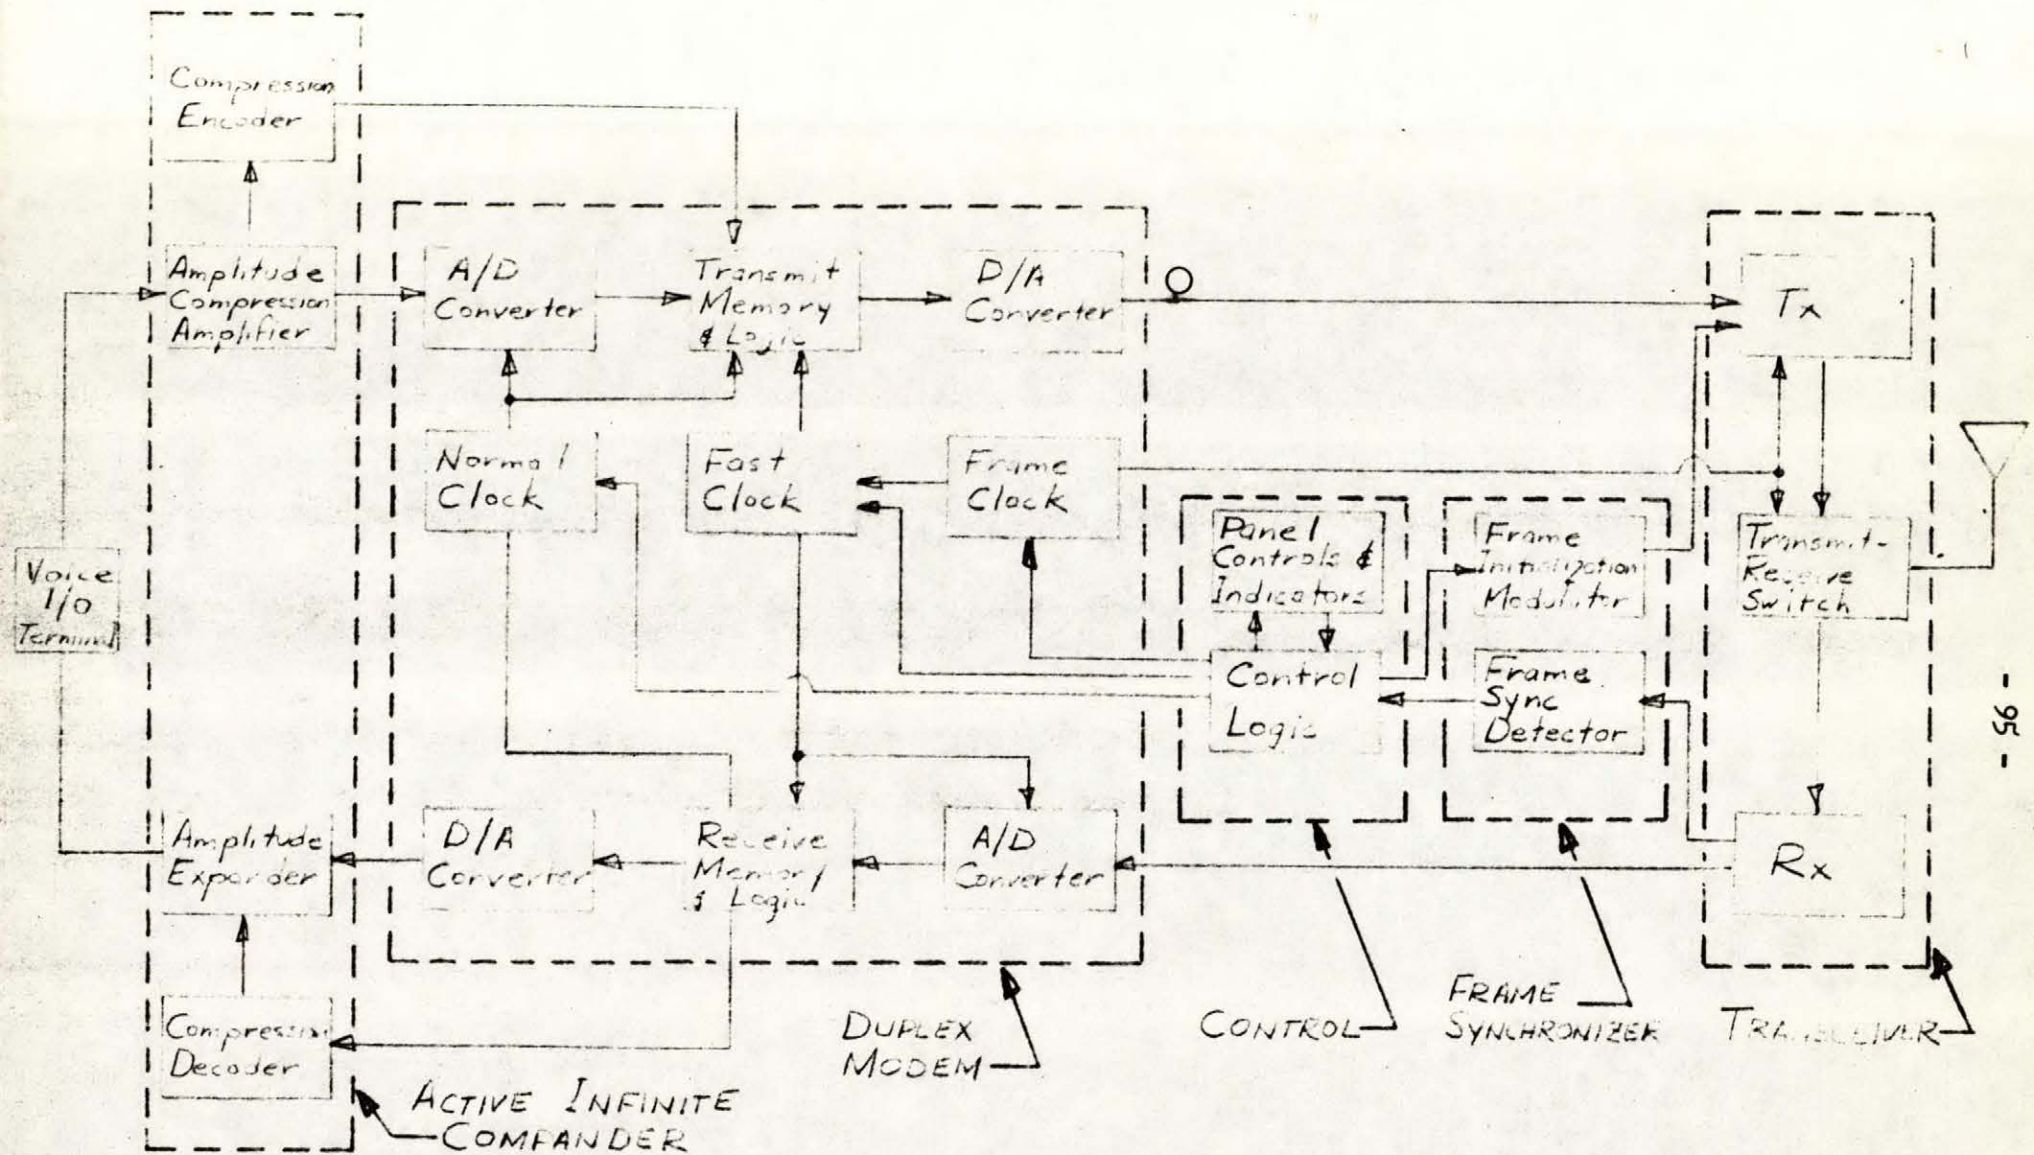 Compression
Encoder
Amplitude
Compression
Amplifier
A/D
Converter
Transmit
Memory
& Logic
D/A
Converter
Tx
Normal
Clock
Fast
Clock
Frame
Clock
Panel
Controls &
Indicators
Frame
Initialization
Modulator
Transmit-
Receive
Switch
Voice
I/O
Terminal
Control
Logic
Frame
Sync
Detector
- 95 -
Amplitude
Expander
D/A
Converter
Receive
Memory
& Logic
A/D
Converter
Rx
Compression
Decoder
DUPLEX
MODEM
CONTROL
FRAME
SYNCHRONIZER
TRANSCEIVER
ACTIVE INFINITE
COMPANDER